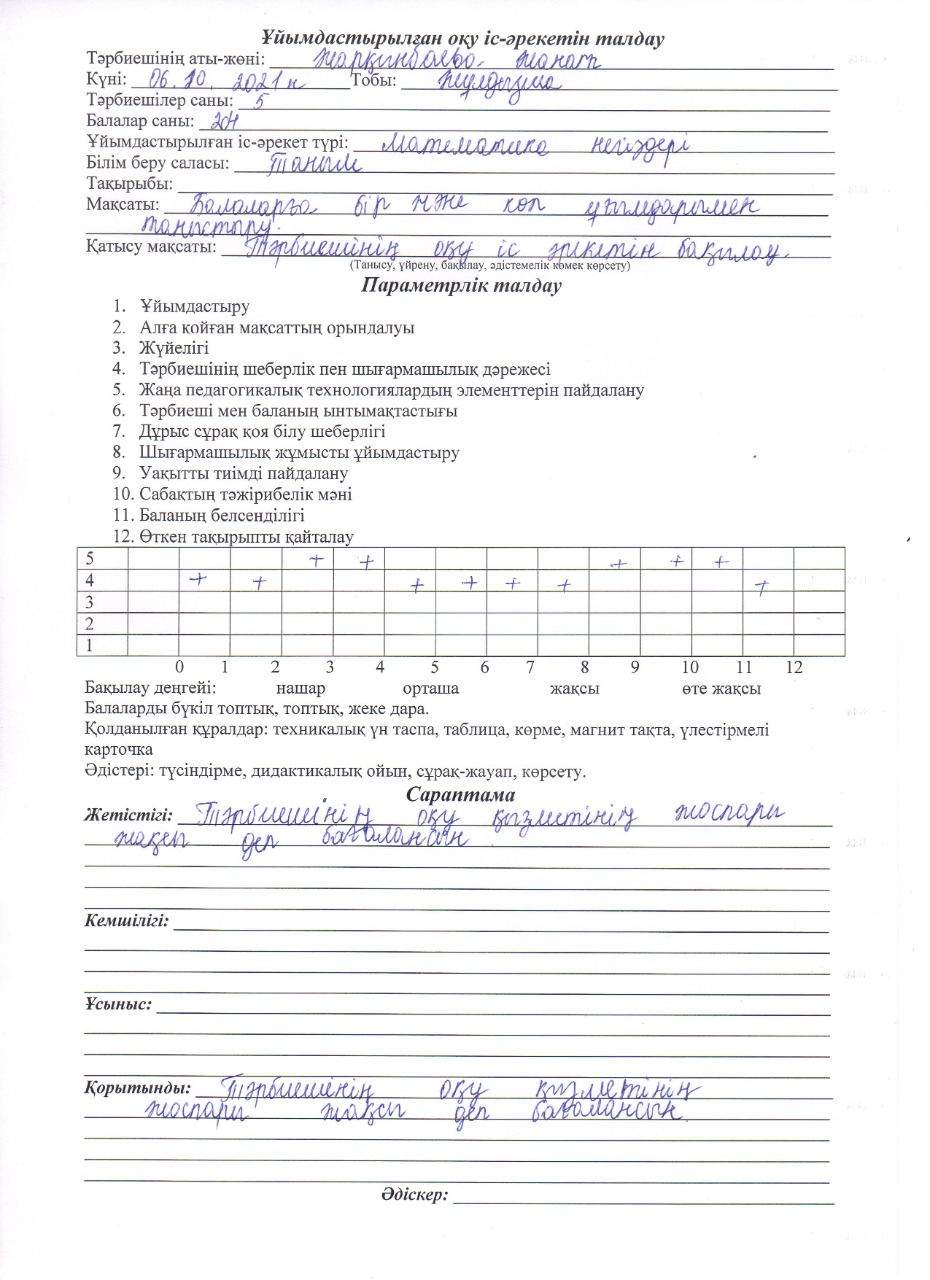 Ұйымдастырылған оқу іс-әрекетін талдау
Тәрбиешінің аты-жөні: Жарқинбаева Жанат
Күні: 06.10. 2021 ж Тобы: Жұлдызша
Тәрбиешілер саны: 5
Балалар саны: 204
Ұйымдастырылған іс-әрекет түрі: Математика негіздері
Білім беру саласы: Таным
Тақырыбы:
Мақсаты: Балаларға бір және көп ұғымдарымен
таныстыру.
Қатысу мақсаты: Тәрбиешінің оқу іс әрекетін бақылау.
(Танысу, үйрену, бақылау, әдістемелік көмек көрсету)
Параметрлік талдау
1. Ұйымдастыру
2. Алға қойған мақсаттың орындалуы
3. Жүйелігі
4. Тәрбиешінің шеберлік пен шығармашылық дәрежесі
5. Жаңа педагогикалық технологиялардың элементтерін пайдалану
6. Тәрбиеші мен баланың ынтымақтастығы
7. Дұрыс сұрақ қоя білу шеберлігі
8. Шығармашылық жұмысты ұйымдастыру
9. Уақытты тиімді пайдалану
10. Сабақтың тәжірибелік мәні
11. Баланың белсенділігі
12. Өткен тақырыпты қайталау
5 + + + + +
4 + + + + + + +
3
2
1
0 1 2 3 4 5 6 7 8 9 10 11 12
Бақылау деңгейі: нашар орташа жақсы өте жақсы
Балаларды бүкіл топтық, топтық, жеке дара.
Қолданылған құралдар: техникалық үн таспа, таблица, көрме, магнит тақта, үлестірмелі
карточка
Әдістері: түсіндірме, дидактикалық ойын, сұрақ-жауап, көрсету.
Сараптама
Жетістігі: Тәрбиешінің оқу қызметінің жоспары
жақсы деп бағалансын
Кемшілігі:
Ұсыныс:
Қорытынды: Тәрбиешінің оқу қызметінің
жоспары жақсы деп бағалансын.
Әдіскер: